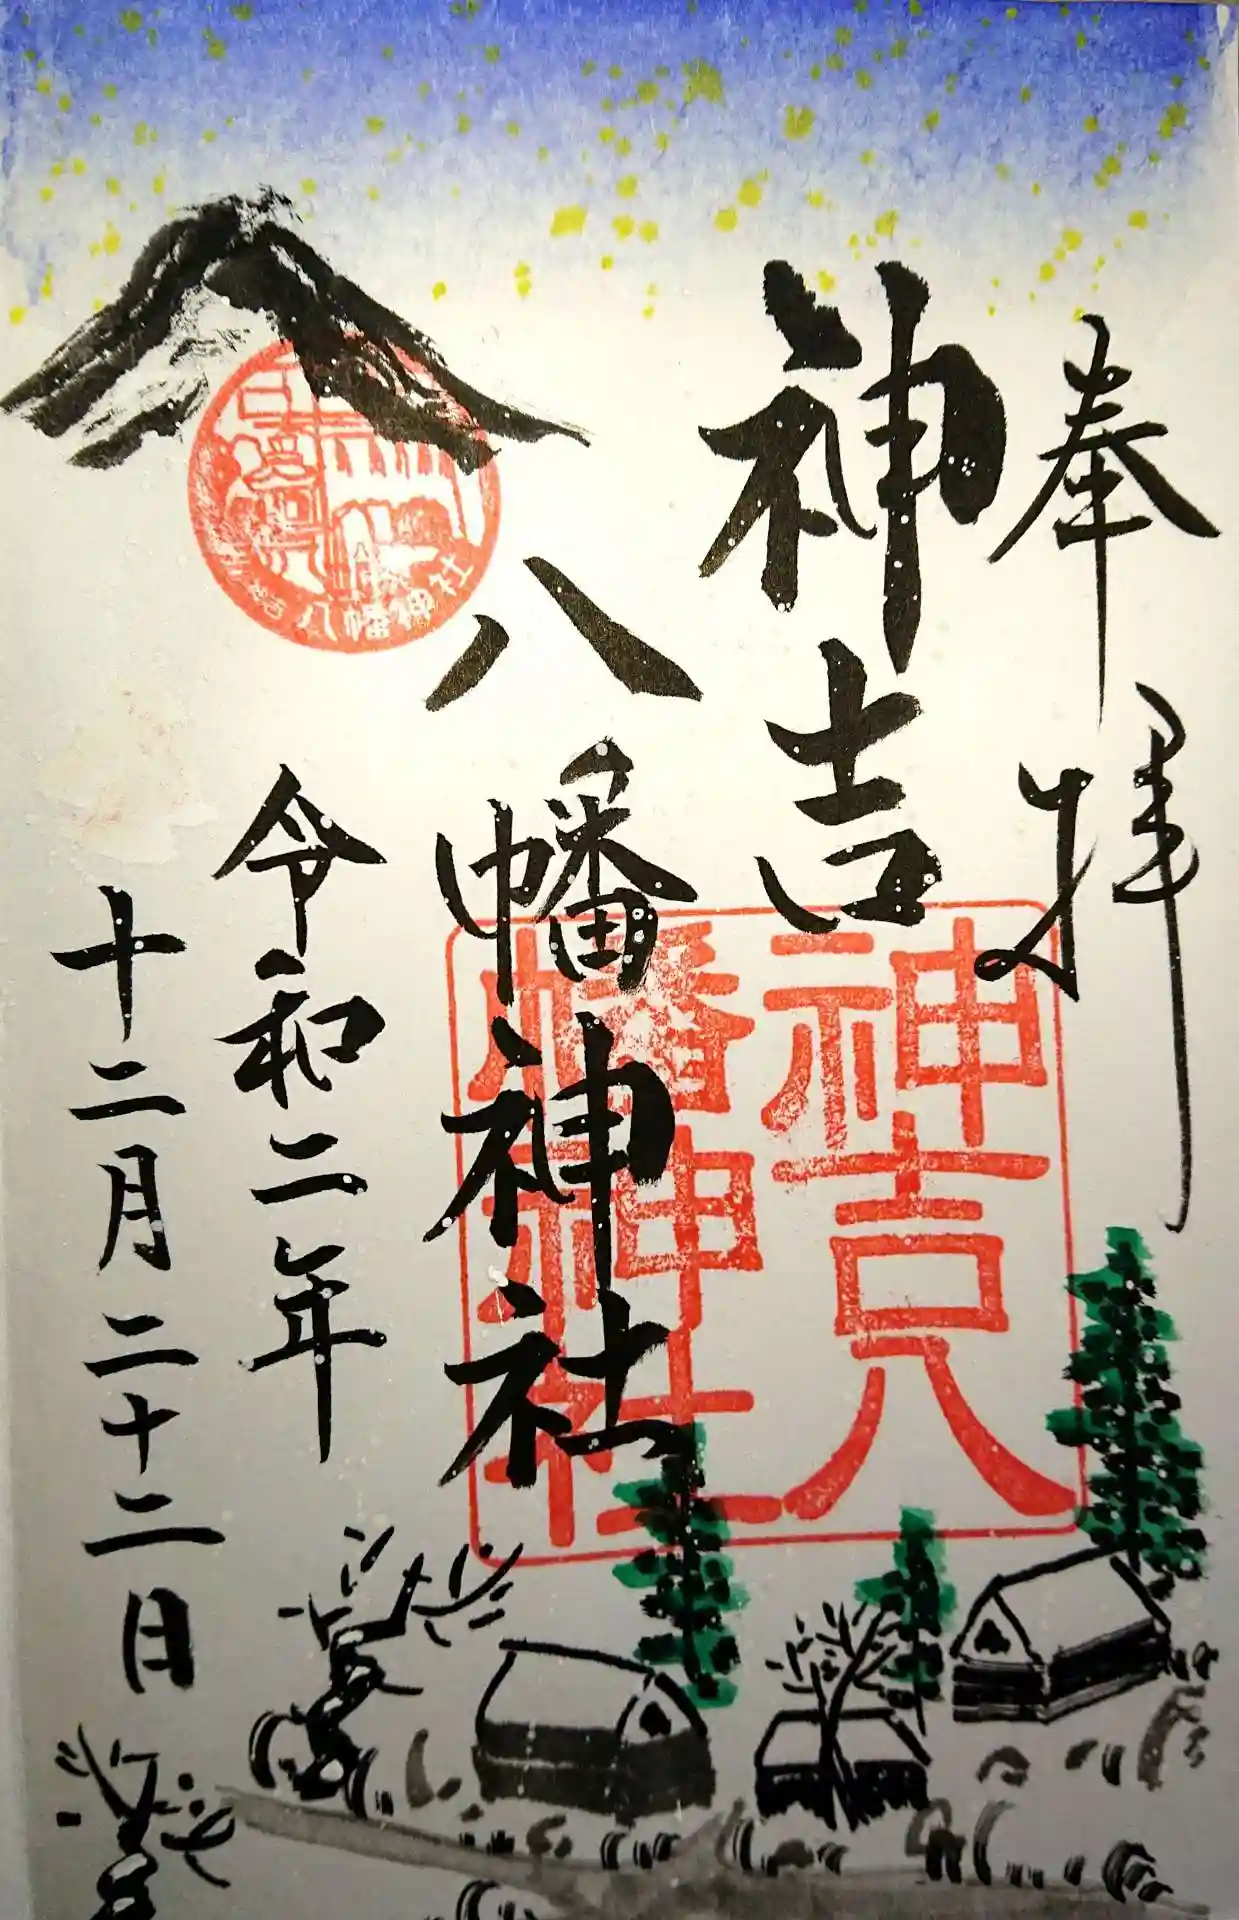 奉拝
神吉
八幡神社
令和二年
十二月二十二日
神吉八
幡神社
神吉八幡神社